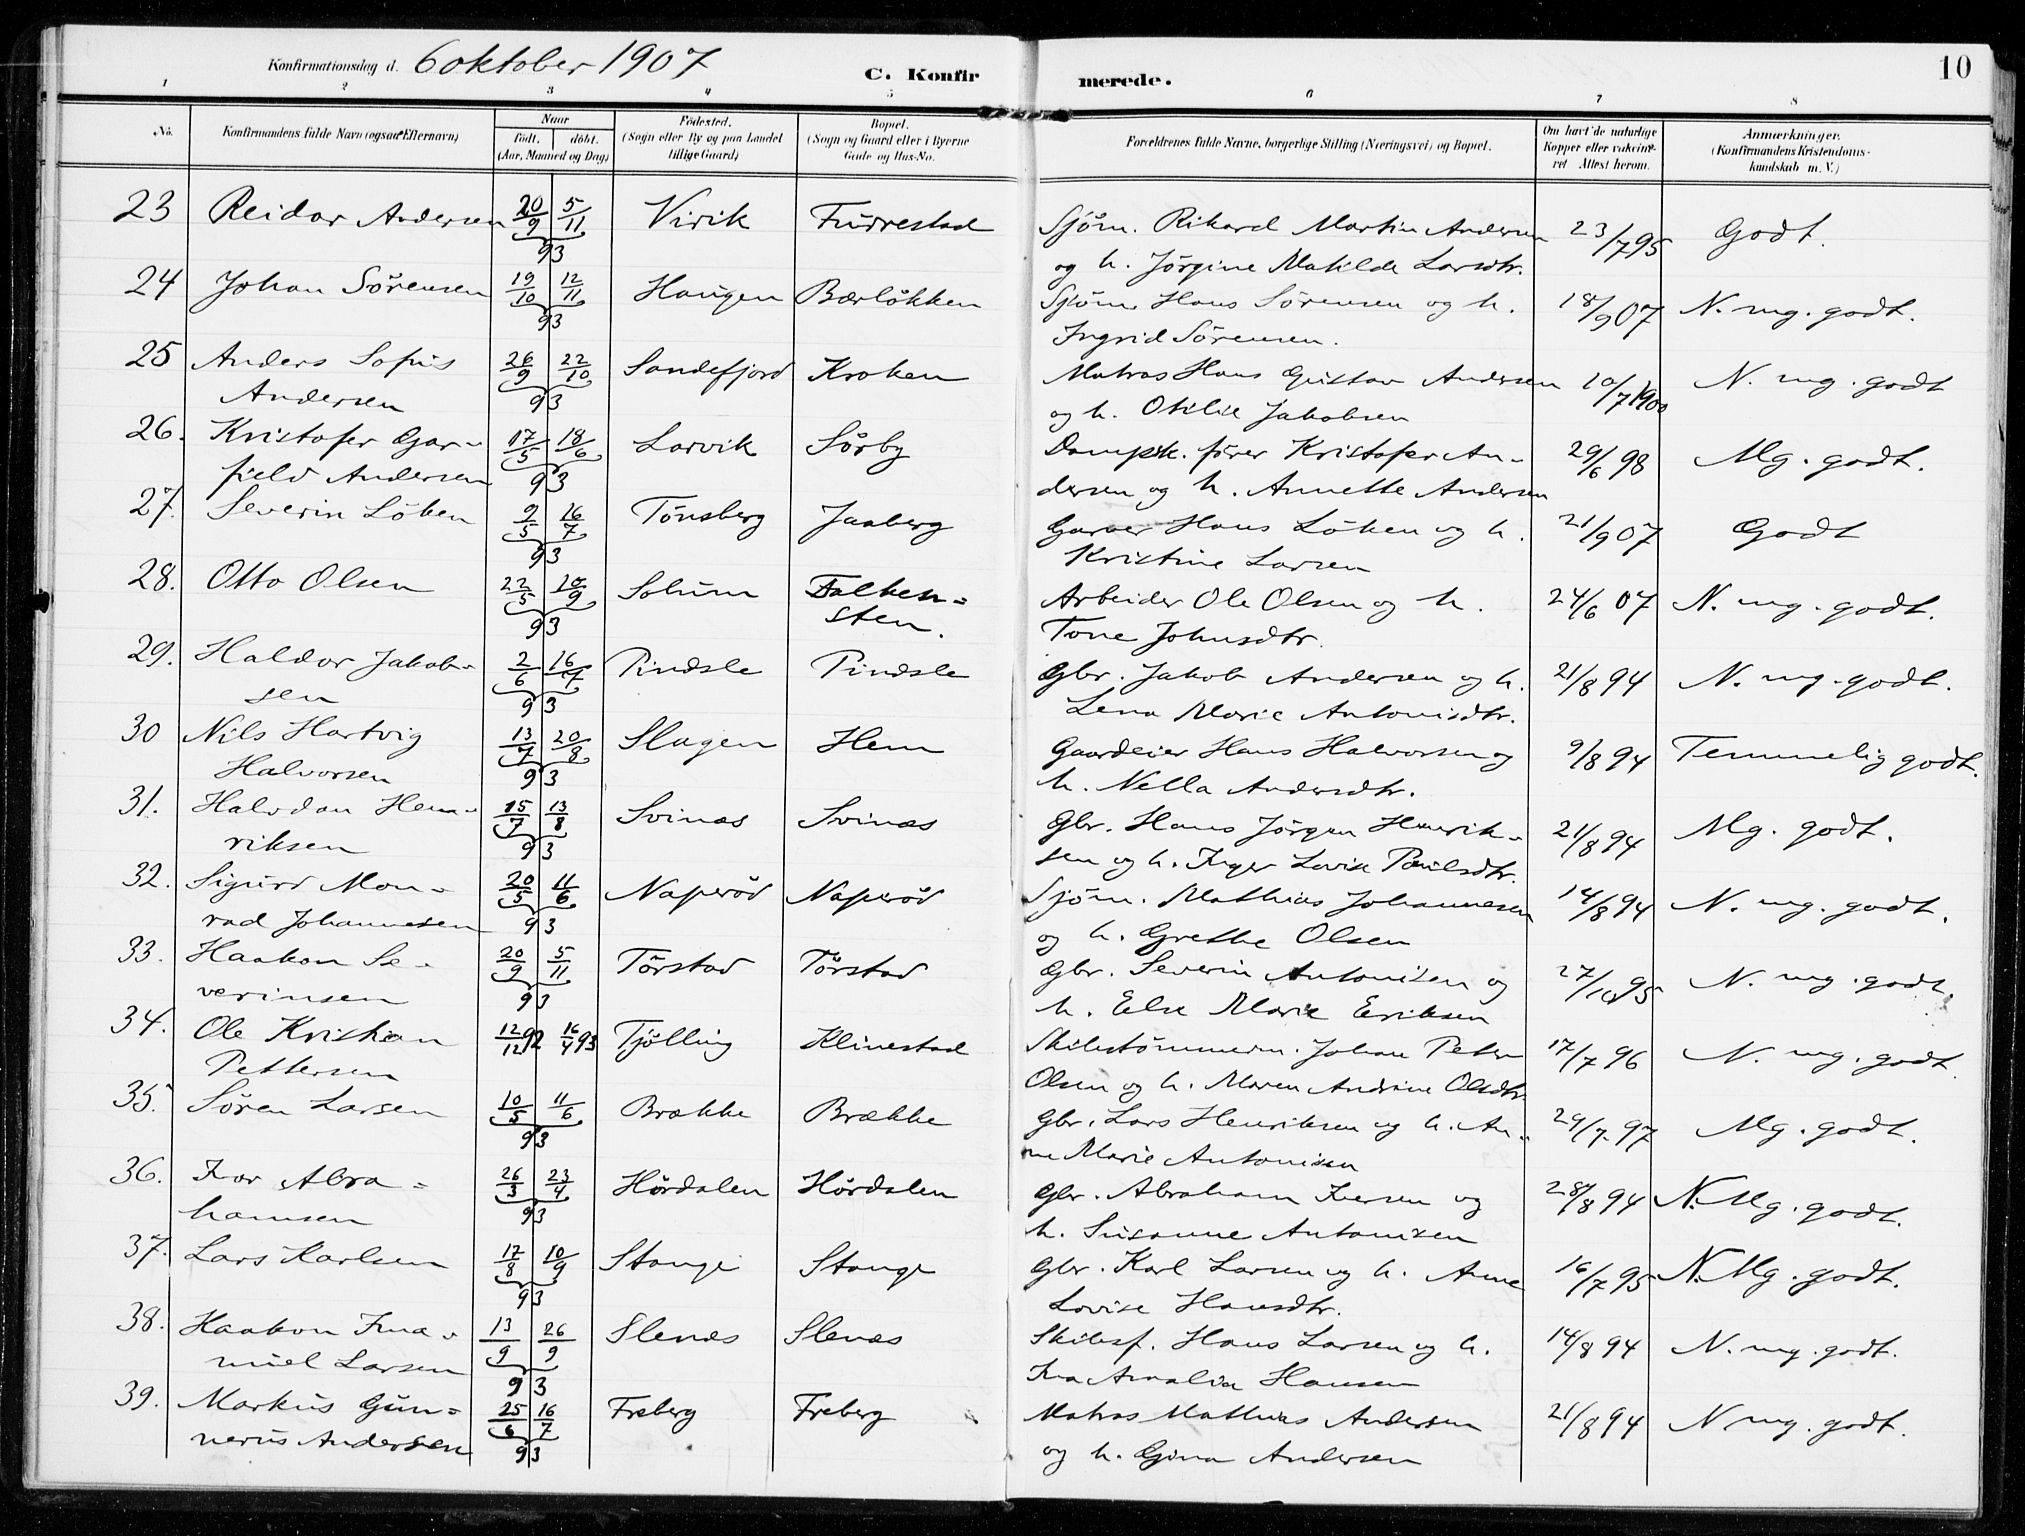 Konfirmationsdag d. 6 oktober 1907
C. Konfirmerede.
10
1 2 3 4 5 6 7 8
No.
Konfirmandens fulde Navn (ogsaa Efternavn)
Naar
født. døbt.
(Aar, Maaned og Dag)
Fødested.
(Sogn eller By og paa Landet
tillige Gaard)
Bopæl.
(Sogn og Gaard eller i Byerne
Gade og Hus-No.
Forældrenes fulde Navne, borgerlige Stilling (Næringsvei) og Bopæl.
Om havt de naturlige
Kopper eller vakcine-
ret Attest herom.
Anmærkninger.
(Konfirmandens Kristendoms-
kundskab m. V.)
23 Reidar Andersen 20/9 5/11 93 Virik Furrestad Sjøm. Rikard Martin Andersen 23/7 95 Godt.
og h. Jørgine Matilde Larsdtr.
24 Johan Sørensen 19/10 12/11 93 Haugen Bærløkken Sjøm Hans Sørensen og h. 18/9 07 N. mg. godt.
Ingrid Sørensen.
25 Anders Sofus 26/9 22/10 93 Sandefjord Kroken Matros Hans Gustav Andersen 10/7 1900 N. mg. godt
Andersen og h. Otilie Jakobsen
26. Kristofer Gar- 17/5 18/6 93 Larvik Sørby Dampsk. fører Kristofer An- 29/6 98 Mg. godt.
field Andersen dersen og h. Annette Andersen
27. Severin Løken 9/5 16/7 93 Tønsberg Jaaberg Garver Hans Løken og h. 21/9 07 Godt
Kristine Larsen
28. Otto Olsen 22/5 10/9 93 Solum Falken- Arbeider Ole Olsen og h. 24/6 07 N. mg. godt.
sten. Tone Johnsdtr.
29. Haldor Jakob- 2/6 16/7 93 Pindsle Pindsle Gbr. Jakob Andersen og h. 21/8 94 N. mg. godt.
sen Lena Marie Antonisdtr.
30 Nils Hartvig 13/7 20/8 93 Slagen Hem Gaardeier Hans Halvorsen og 9/8 94 Temmelig godt.
Halvorsen h. Nella Andersdtr.
31. Halvdan Hen- 15/7 13/8 93 Svinæs Svinæs Gbr. Hans Jørgen Henrik- 21/8 94 Mg. godt.
riksen sen og h. Inger Lovise Paulsdtr.
32. Sigurd Mon- 20/5 11/6 93 Naperød Naperød Sjøm. Mathias Johannesen 14/8 94 N. mg. godt.
rad Johannesen og h. Grethe Olsen
33. Haakon Se- 20/9 5/11 93 Tørstad Tørstad Gbr. Severin Antonisen og 27/10 95 N. mg. godt.
verinsen h. Else Marie Eriksen
34. Ole Kristian 12/12 92 16/4 93 Tjølling Klinestad Skibstømmerm. Johan Peter 17/7 96 N. mg. godt.
Pettersen Olsen og h. Maren Andrine Olsdtr.
35. Søren Larsen 10/5 11/6 93 Brække Brække Gbr. Lars Henriksen og h. An- 29/7 97 Mg. godt.
ne Marie Antonisen
36. Ivar Abra- 26/3 23/4 93 Hørdalen Hørdalen Gbr. Abraham Iversen og 28/8 94 N. Mg. godt.
hamsen h. Susanne Antonisen
37. Lars Karlsen 17/8 10/9 93 Stange Stange Gbr. Karl Larsen og h. Anne 16/7 95 N. Mg. godt.
Lovise Hansdtr.
38. Haakon Ima- 13/9 26/9 93 Slenæs Slenæs Skibsf. Hans Larsen og h. 14/8 94 N. mg. godt.
nuel Larsen Ina Amalia Hansen
39. Markus Gun- 25/6 16/7 93 Freberg Freberg Matros Mathias Andersen 21/8 94 N mg. godt.
nerus Andersen og h. Gina Andersen